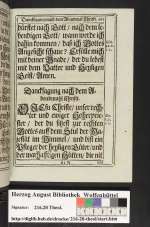 Dancksagung nach dem Abendmal Christi.
dürstet nach Gott / nach dem le-
bendigen Gott / wann werde ich
dahin kommen / daß ich Gottes
Angesicht schaue? Erfülle mich
mit deiner Gnade / der du lebest
mit dem Vatter und Heyligen
Geist. Amen.
Dancksagung nach dem A-
bendmahl Christi.
HErr Christe / unser
und ewiger Hoherprie-
ster / der du sitzest zur rechten
Gottes auff dem Stul der Ma-
jestät im Himmel / und bist ein
Pfleger der heyligen Güter und
der warhafftigen Hütten / die
Herzog August Bibliothek Wolfenbüttel
Signatur: 216.28 Theol.
http://diglib.hab.de/drucke/216-28-theol/start.htm